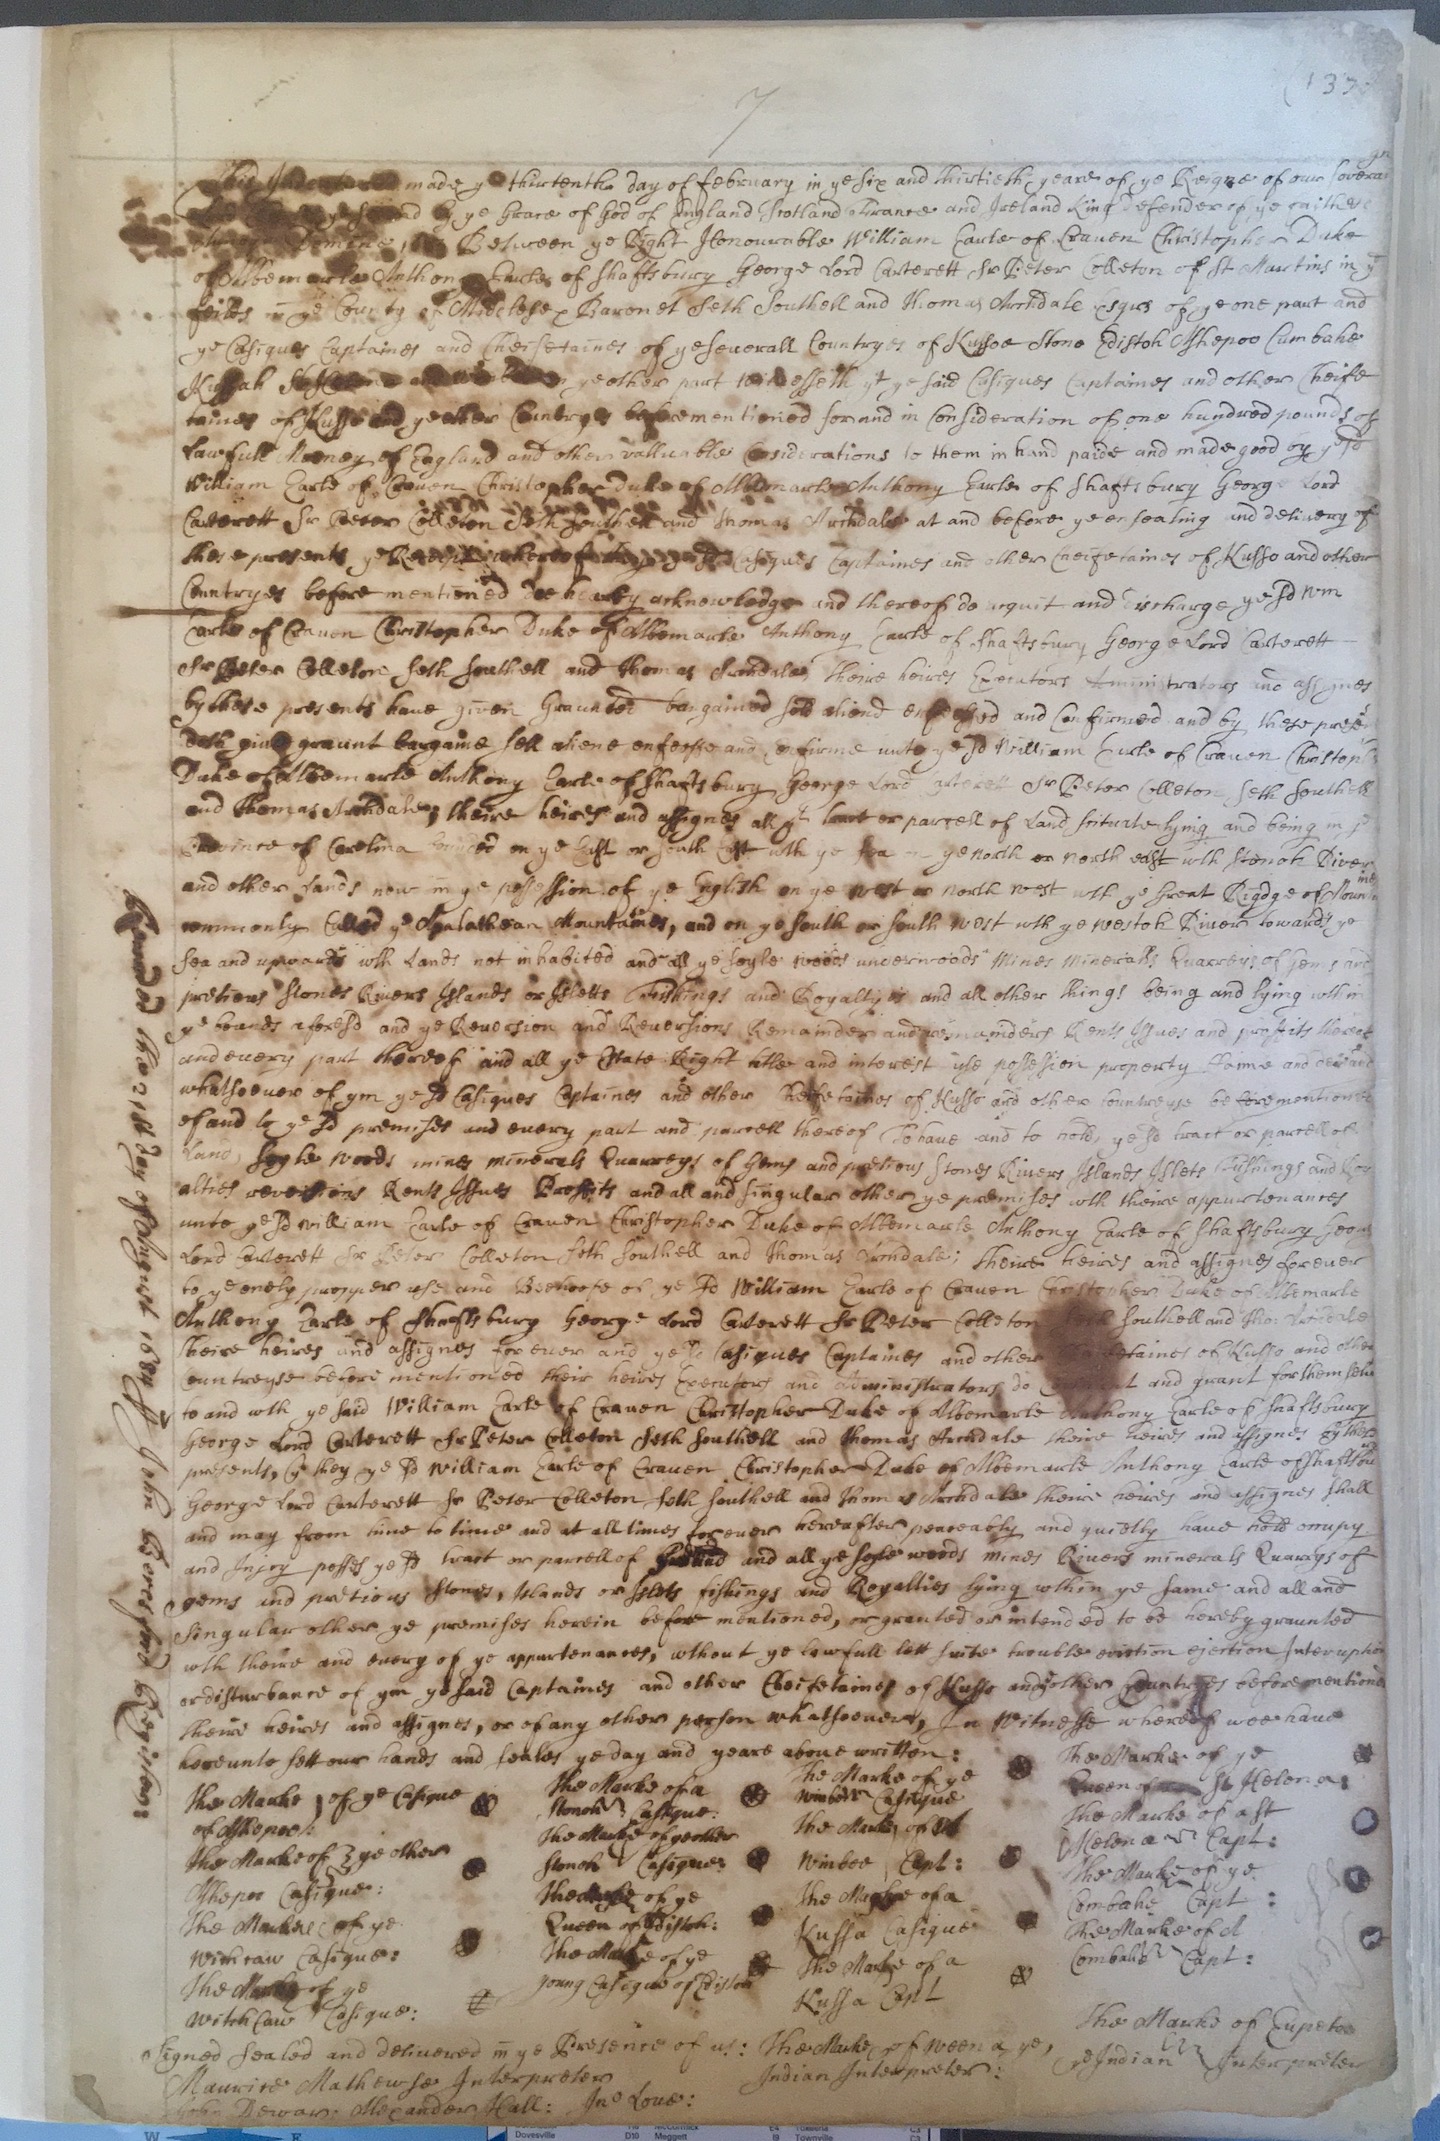 (133
7
This Indenture made ye thirtenth day of february in ye six and thirtieth yeare of ye Reigne of our soverai
gn
by ye Grace of God of England Scotland France and Ireland King Defender of ye faith
Between ye Right Honourable William Earle of Craven Christopher Duke
of Albemarle Anthony Earle of Shaftsbury George Lord Carterett Sr Peter Colleton of St Martins in ye
feilds in ye County of Middlesex Baronet Seth Southell and Thomas Archdale Esqrs of ye one part and
ye Casiques Captaines and Cheifetaines of ye severall Countryes of Kussoe Stono Edistoh Ashepoo Cumbahe
Kussah St Helena and ye other part Witnesseth yt ye said Casiques Captaines and other Cheife
taines of Kusso and ye other Countryes beforementioned for and in Consideration of one hundred pounds of
Lawfull Money of England and other valluable Considerations to them in hand paide and made good by ye sd
William Earle of Craven Christopher Duke of Albemarle Anthony Earle of Shaftsbury George Lord
Carterett Sr Peter Colleton Seth Southell and Thomas Archdale at and before ye ensealing and delivery of
these presents ye Receipt whereof ye sd Casiques Captaines and other Cheifetaines of Kusso and other
Countryes before mentioned doe hereby acknowledge and thereof do acquit and discharge ye sd Wm
Earle of Craven Christopher Duke of Albemarle Anthony Earle of Shaftsbury George Lord Carterett
Sr Peter Colleton Seth Southell and Thomas Archdale, theire heires Executors Administrators and assignes
by these presents have given Graunted bargained sold aliend enfeofed and Confirmed and by these presen
doth give graunt bargaine sell aliene enfeoffe and Confirme unto ye sd William Earle of Craven Christoph
Duke of Albemarle Anthony Earle of Shaftsbury George Lord Carterett Sr Peter Colleton Seth Southell
and Thomas Archdale, theire heires and assignes all yt tract or parcell of Land scituate lying and being in ye
Province of Carolina bounded on ye East or South East wth ye sea on ye north or north east wth Stonoh River
and other Lands now in ye possession of ye English on ye west or north west wth ye Great Ridge of Mount
ines
commonly Called ye Apalathean Mountaines, and on ye South or South west wth ye westoh River towards ye
sea and upwards wth Lands not inhabited and all ye soyle woods underwoods mines mineralls Quarreys of Gems and
pretious Stones Rivers Islands or Isletts Fishings and Royallties and all other things being and lying wthin
ye bounds aforesd and ye Reversion and Reversions Remainder and remainders Rents Issues and proffits thereof
and every part thereof and all ye Estate Right title and interest use possession property Claime and demand
whatsoever of ym ye sd Casiques Captaines and other Cheifetaines of Kusso and other Countreyse beforementioned
of and to ye sd premises and every part and parcell thereof To have and to hold, ye sd tract or parcell of
Land, Soyle woods mines minerals Quarreys of Gems and pretious Stones Rivers Islands Islets Fishings and Roy
alties reversions Rents Issues Proffits and all and singular other ye premises wth theire appurtenances
unto ye sd William Earle of Craven Christopher Duke of Albemarle Anthony Earle of Shaftsbury Geor
Lord Carterett Sr Peter Colleton Seth Southell and Thomas Archdale; theire heires and assignes forever
to ye onely propper use and Behoofe of ye sd William Earle of Craven Christopher Duke of Albemarle
Anthony Earle of Shaftsbury George Lord Carterett Sr Peter Colleton Seth Southell and Tho: Archdale
theire heires and assignes for ever and ye sd Casiques Captaines and other Cheifetaines of Kusso and other
Countreyse before mentioned their heires Executors and administrators do and grant for themselv
to and wth ye said William Earle of Craven Christopher Duke of Albemarle Anthony Earle of Shaftsbury
George Lord Carterett Sr Peter Colleton Seth Southell and Thomas Archdale theire heires and assignes by these
presents, yt they ye sd William Earle of Craven Christopher Duke of Albemarle Anthony Earle of Shaftsbu
George Lord Carterett Sr Peter Colleton Seth Southell and Thomas Archdale theire heires and assignes shall
and may from time to time and at all times forever hereafter peaceably and quietly have hold occupy
and Injoy posses ye sd tract or parcell of Ground and all ye soyle woods mines Rivers minerals Quarrys of
gems and pretious Stones, Islands or Islets fishings and Royallties lying wthin ye same and all and
singular other ye premises herein before mentioned, or granted or intended to be hereby graunted
wth theire and every of ye appurtenances, wthout ye lawfull lett suite trouble eviction ejection Interuption
or disturbance of ym ye said Captaines and other Cheifetaines of Kusso and other Countryes before mentioned
theire heires and assignes, or of any other person whatsoever, In Witnesse whereof wee have
hereunto sett our hands and seales ye day and yeare above written:
The Marke of ye Casique
of Ashepoo:
The Marke of ye other
Ashepoo Casique:
The Marke of ye
Witchcaw Casique:
The Marke of ye
Witchcaw Casique:
The Marke of a
Stonoh Casique:
The Marke of ye other
Stonoh Casique:
The Marke of ye
Queen of Edistoh:
The Marke of ye
young Casique of Edistoh
The Marke of ye
Wimbee Casique
The Marke of
Wimbee Capt:
The Marke of a
Kussa Casique
The Marke of a
Kussa Capt
The Marke of ye
Queen of St Helena:
The Marke of a St
Helena Capt:
The Marke of ye
Combahe Capt:
The Marke of a
Combahe Capt:
Signed sealed and delivered in ye Presence of us: The Marke of Weena ye,
Indian Interpreter:
The Marke of
ye Indian Interpreter
Maurice Mathewse Interpreter
John Dewar: Alexander Hall: Jno Love:
Recorded the 21th day of August 1684 John Beresford Register:
W E
Dovesville D10 McCormick
Meggett E4
I9 Townville